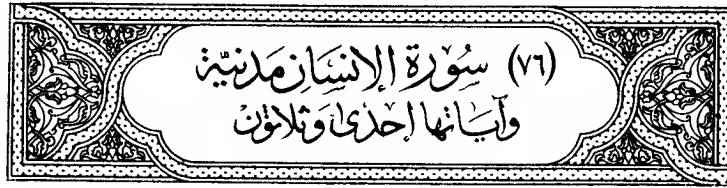 (٧٦) سُورَة الإنسَان مَدنيَّة
وآيَاتها إحدى وَثلاثون